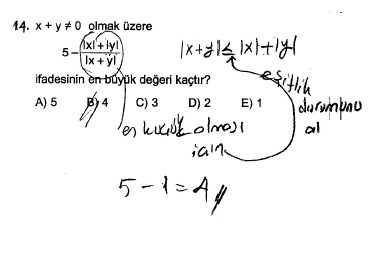 14. x + y ≠ 0 olmak üzere
5 - |x| + |y| / |x + y|
|x+y| ≤ |x|+|y|
ifadesinin en büyük değeri kaçtır?
eşitlik
durumunu
al
A) 5 B) 4 C) 3 D) 2 E) 1
en küçük olması
için
5 - 1 = 4